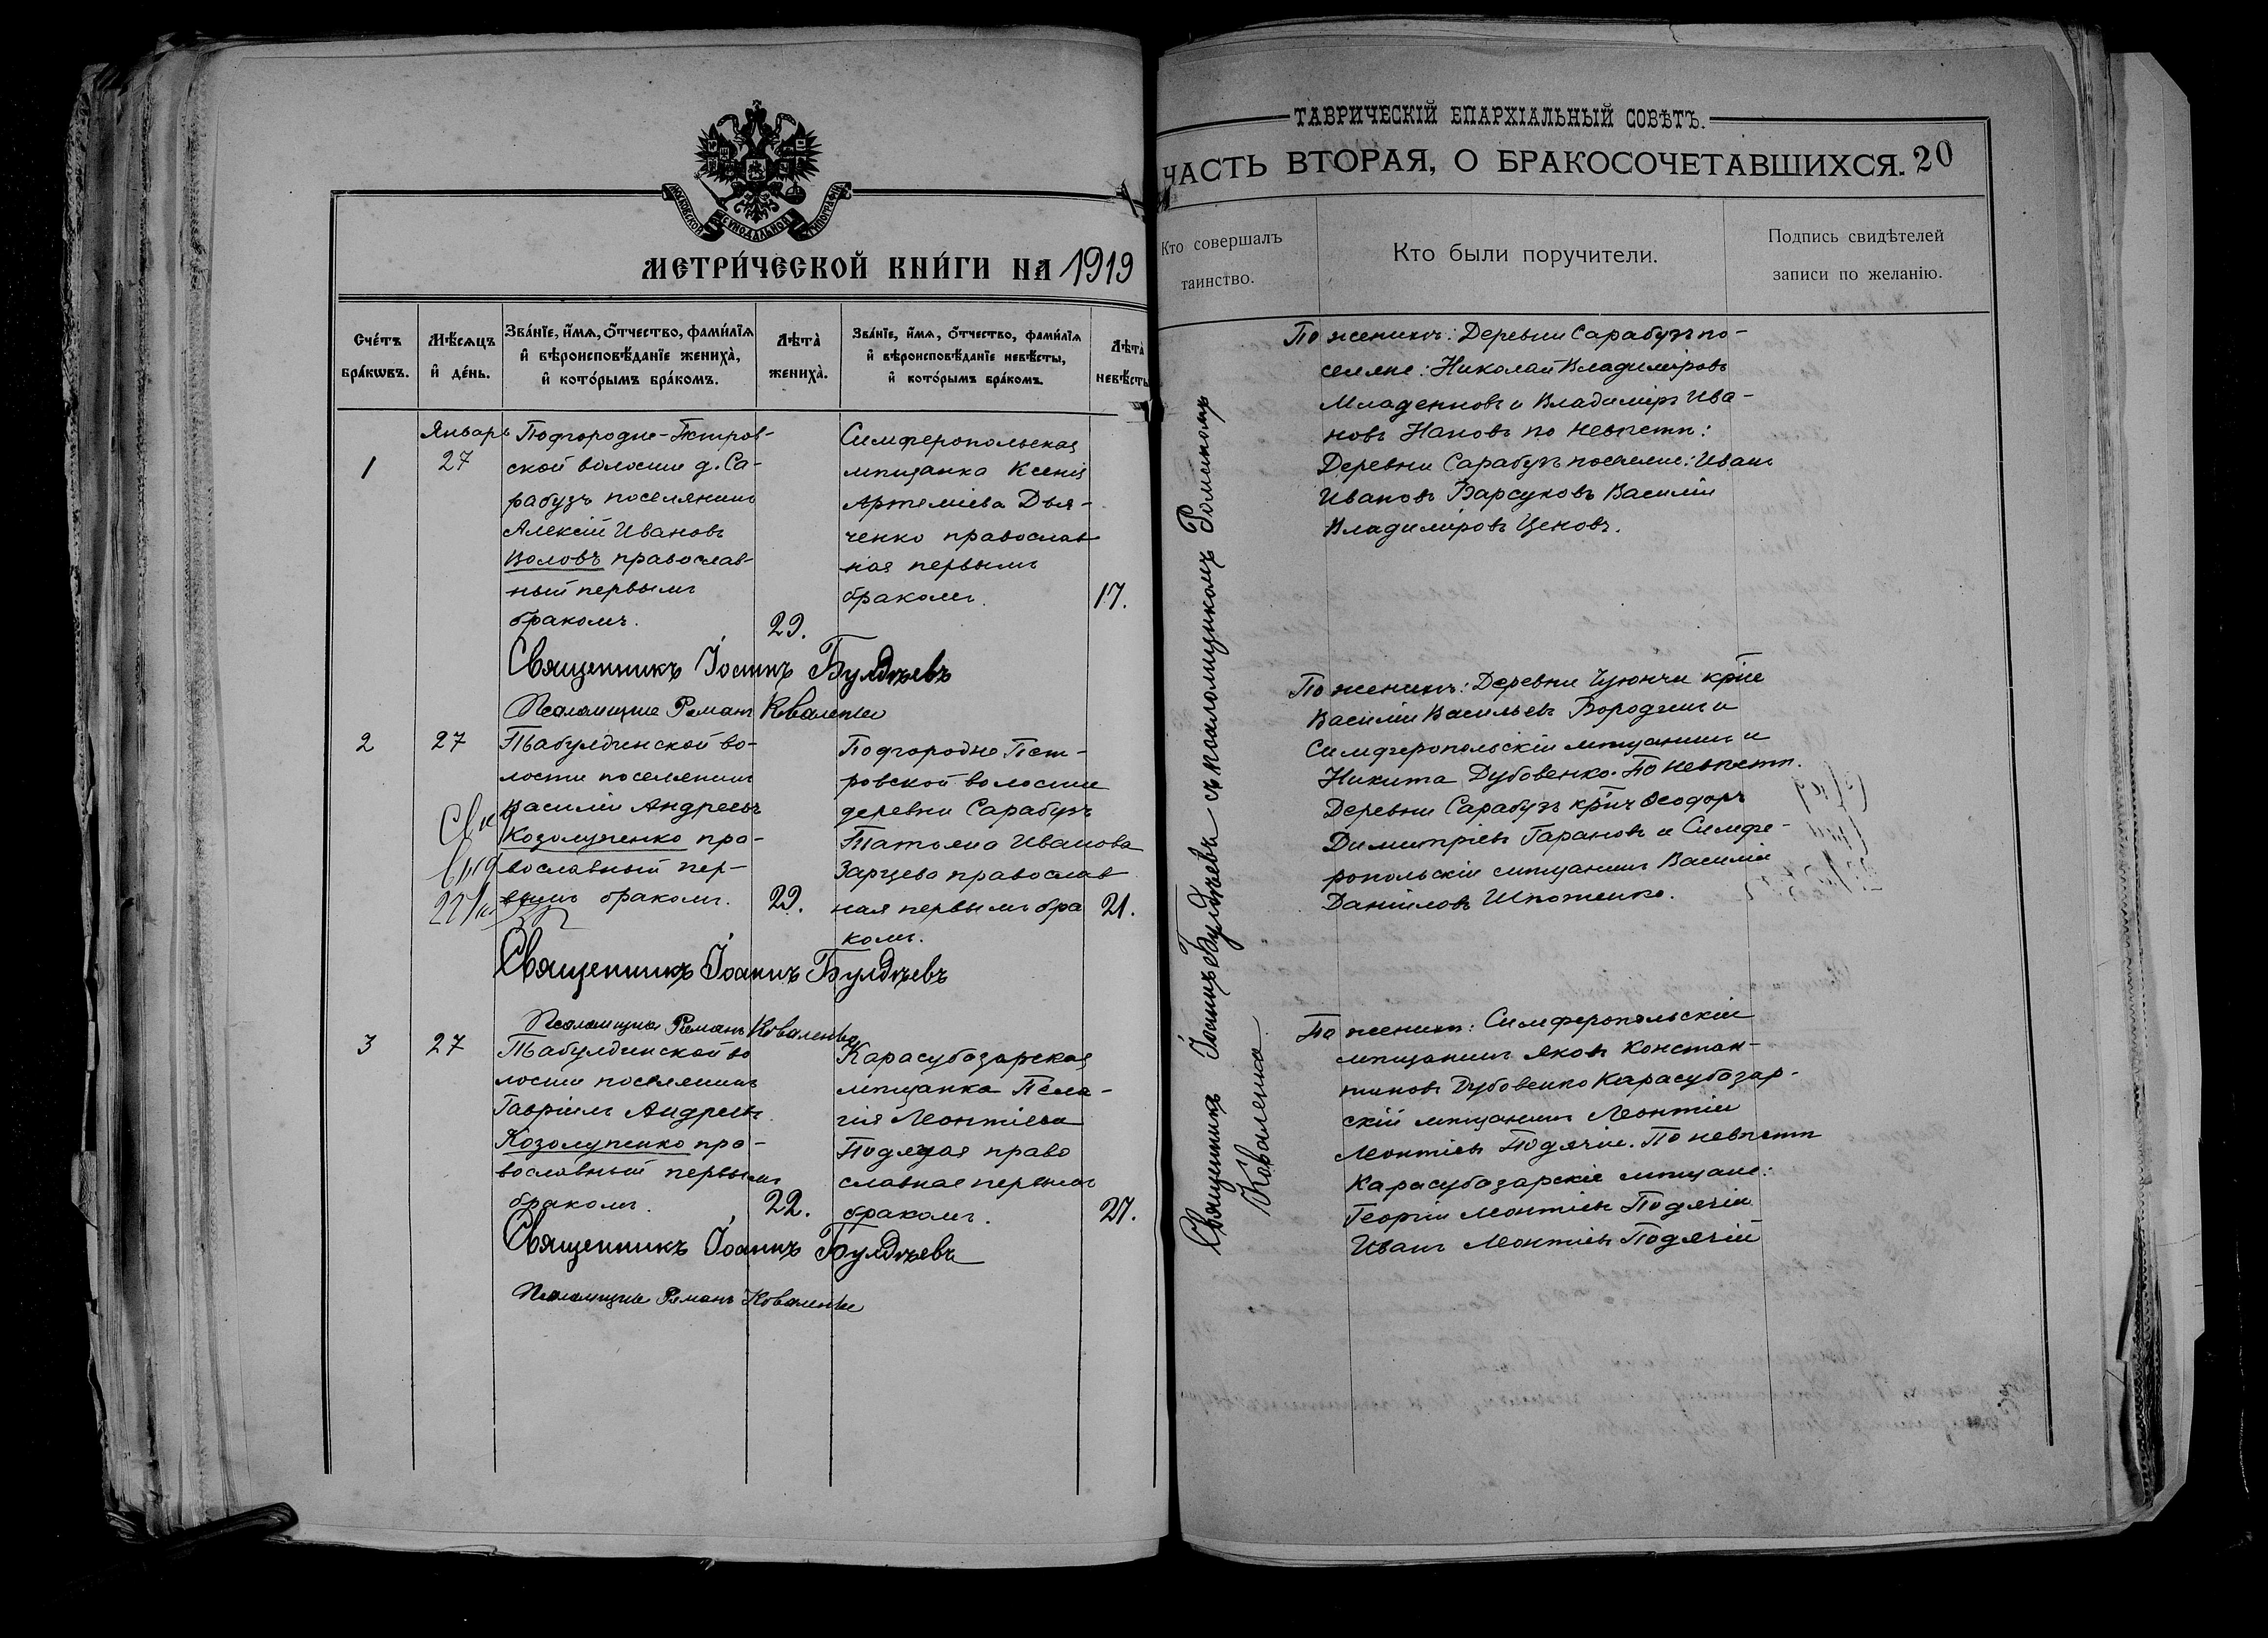 МОСКОВСКОЙ СѴНОДАЛЬНОЙ ТИПОГРАФІИ
МЕТРИ́ЧЕСКОЙ КНИ́ГИ НА 1919
Сче́тъ бра́кωвъ.
Мѣ́сѧцъ и҆ де́нь.
Зва́нїе, и҆́мѧ, ѻ҆́тчество, фами́лїѧ
и҆ вѣроисповѣ́данїе жениха̀,
и҆ кото́рымъ бра́комъ.
Лѣта̀ жениха̀.
Зва́нїе, и҆́мѧ, ѻ҆́тчество, фами́лїѧ
и҆ вѣроисповѣ́данїе невѣ́сты,
и҆ кото́рымъ бра́комъ.
Лѣта̀ невѣ́сты
1
Январь
27
Подгородне-Петров-
ской волости д. Са-
рабузъ поселянинъ
Алексій Ивановъ
Воловъ православ-
ный первымъ
бракомъ.
29.
Симферопольская
мѣщанка Ксенія
Артеміева Дья-
ченко православ
ная первымъ
бракомъ.
17.
Священникъ Іоаннъ Булдѣевъ
Псаломщикъ Романъ Коваленко
2
27
Табулдинской во-
лости поселянинъ
Василій Андреевъ
Козолупенко пра-
вославный пер-
вымъ бракомъ.
29.
Подгородне Пет-
ровской волости
деревни Сарабузъ
Татьяна Иванова
Зарцева православ
ная первымъ бра
комъ.
21.
Священникъ Іоаннъ Булдѣевъ
Псаломщикъ Романъ Коваленко
3
27
Табулдинской во
лости поселянинъ
Гавріилъ Андреевъ
Козолупенко пра-
вославный первымъ
бракомъ.
22.
Карасубазарская
мѣщанка Пела-
гія Леонтіева
Подячая право
славная первымъ
бракомъ.
27.
Священникъ Іоаннъ Булдѣевъ
Псаломщикъ Романъ Коваленко
ТАВРИЧЕСКІЙ ЕПАРХІАЛЬНЫЙ СОВѢТЪ.
ЧАСТЬ ВТОРАЯ, О БРАКОСОЧЕТАВШИХСЯ. 20
Кто совершалъ
таинство.
Кто были поручители.
Подпись свидѣтелей
записи по желанію.
Священникъ Іоаннъ Булдѣевъ съ псаломщикомъ Романомъ
Коваленка
По женихѣ: Деревни Сарабузъ по-
селяне: Николай Владиміровъ
Младеновъ и Владиміръ Ива-
новъ Наповъ по невѣстѣ:
Деревни Сарабузъ поселяне: Иванъ
Ивановъ Барсуковъ Василій
Владиміровъ Ценовъ.
По женихѣ: Деревни Чуюнчи кр-не
Василій Васильевъ Бородкинъ и
Симферопольскій мѣщанинъ и
Никита Дубовенко. По невѣстѣ.
Деревни Сарабузъ Ѳеодоръ
Димитріевъ Гарановъ и Симфе-
ропольскій мѣщанинъ Василій
Даніиловъ Шпотенко.
По женихѣ: Симферопольскій
мѣщанинъ Яковъ Констан-
тиновъ Дубовенко Карасубазар-
скій мѣщанинъ Леонтій
Леонтіевъ Подячій. По невѣстѣ
Карасубазарскіе мѣщане:
Георгій Леонтіевъ Подячій
Иванъ Леонтіевъ Подячій